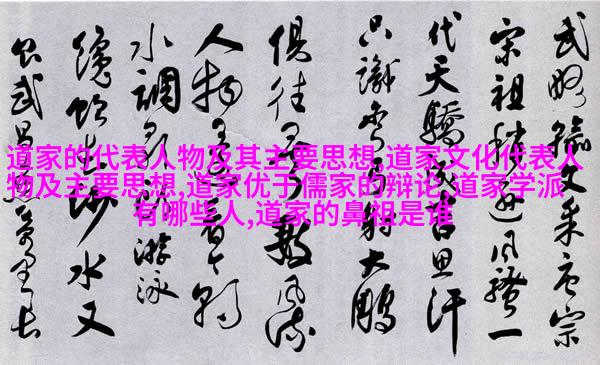 道家的代表人物及其主要思想,道家文化代表人
物及主要思想,道家优于儒家的辩论,道家学派
有哪些人,道家的鼻祖是谁
武略输文采唐宗
宋祖稍逊风骚一
代天驕成吉思汗
只識弯弓射大鵰
俱往矣数风流
人物还看今朝
水調歌头游泳
水又
食武昌鱼万里长